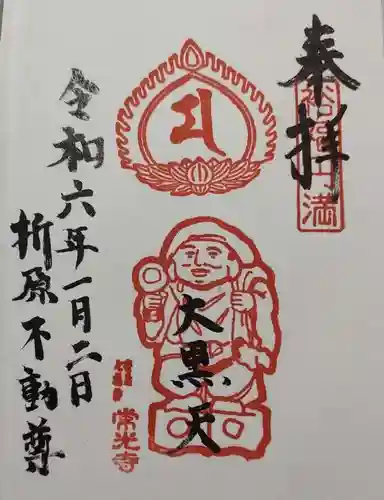 奉拝
大黒天
常光寺
令和六年一月二日
折原不動尊